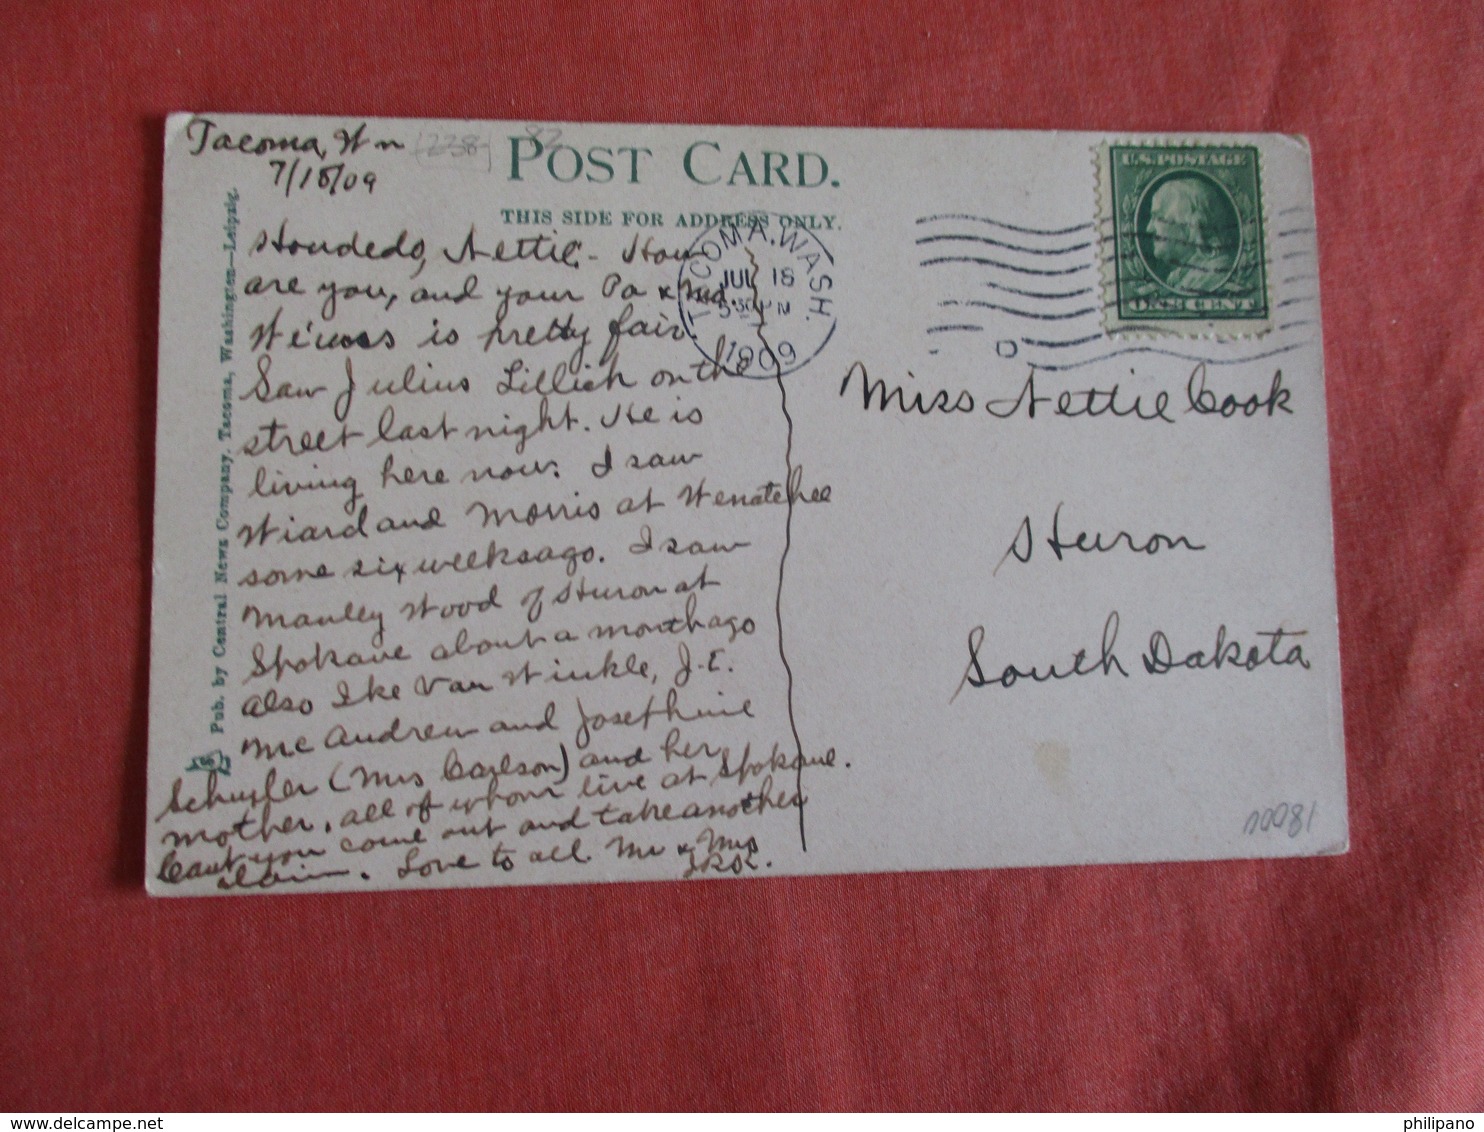 Tacoma, Wn
7/18/09
1238
82
POST CARD.
THIS SIDE FOR ADDRESS ONLY.
U.S. POSTAGE
ONE CENT
TACOMA, WASH.
JUL 18
530 PM
1909
Howdedo, Nettie - How
are you, and your Pa & Ma.
is pretty fair.
Saw Julius Lillich on the
street last night. He is
living here now. I saw
Wiard and Morris at Wenatchee
some six weeks ago. I saw
Manley Wood of Huron at
Spokane about a month ago
also Ike Van Winkle, J.E.
McAndrew and Josephine
Schuyler (Mrs Carlson) and her
mother, all of whom live at Spokane.
Cant you come out and take another
claim. Love to all Mr & Mrs
Miss Nettie Cook
Huron
South Dakota
Pub. by Central News Company, Tacoma, Washington—Leipzig.
10081
philipano